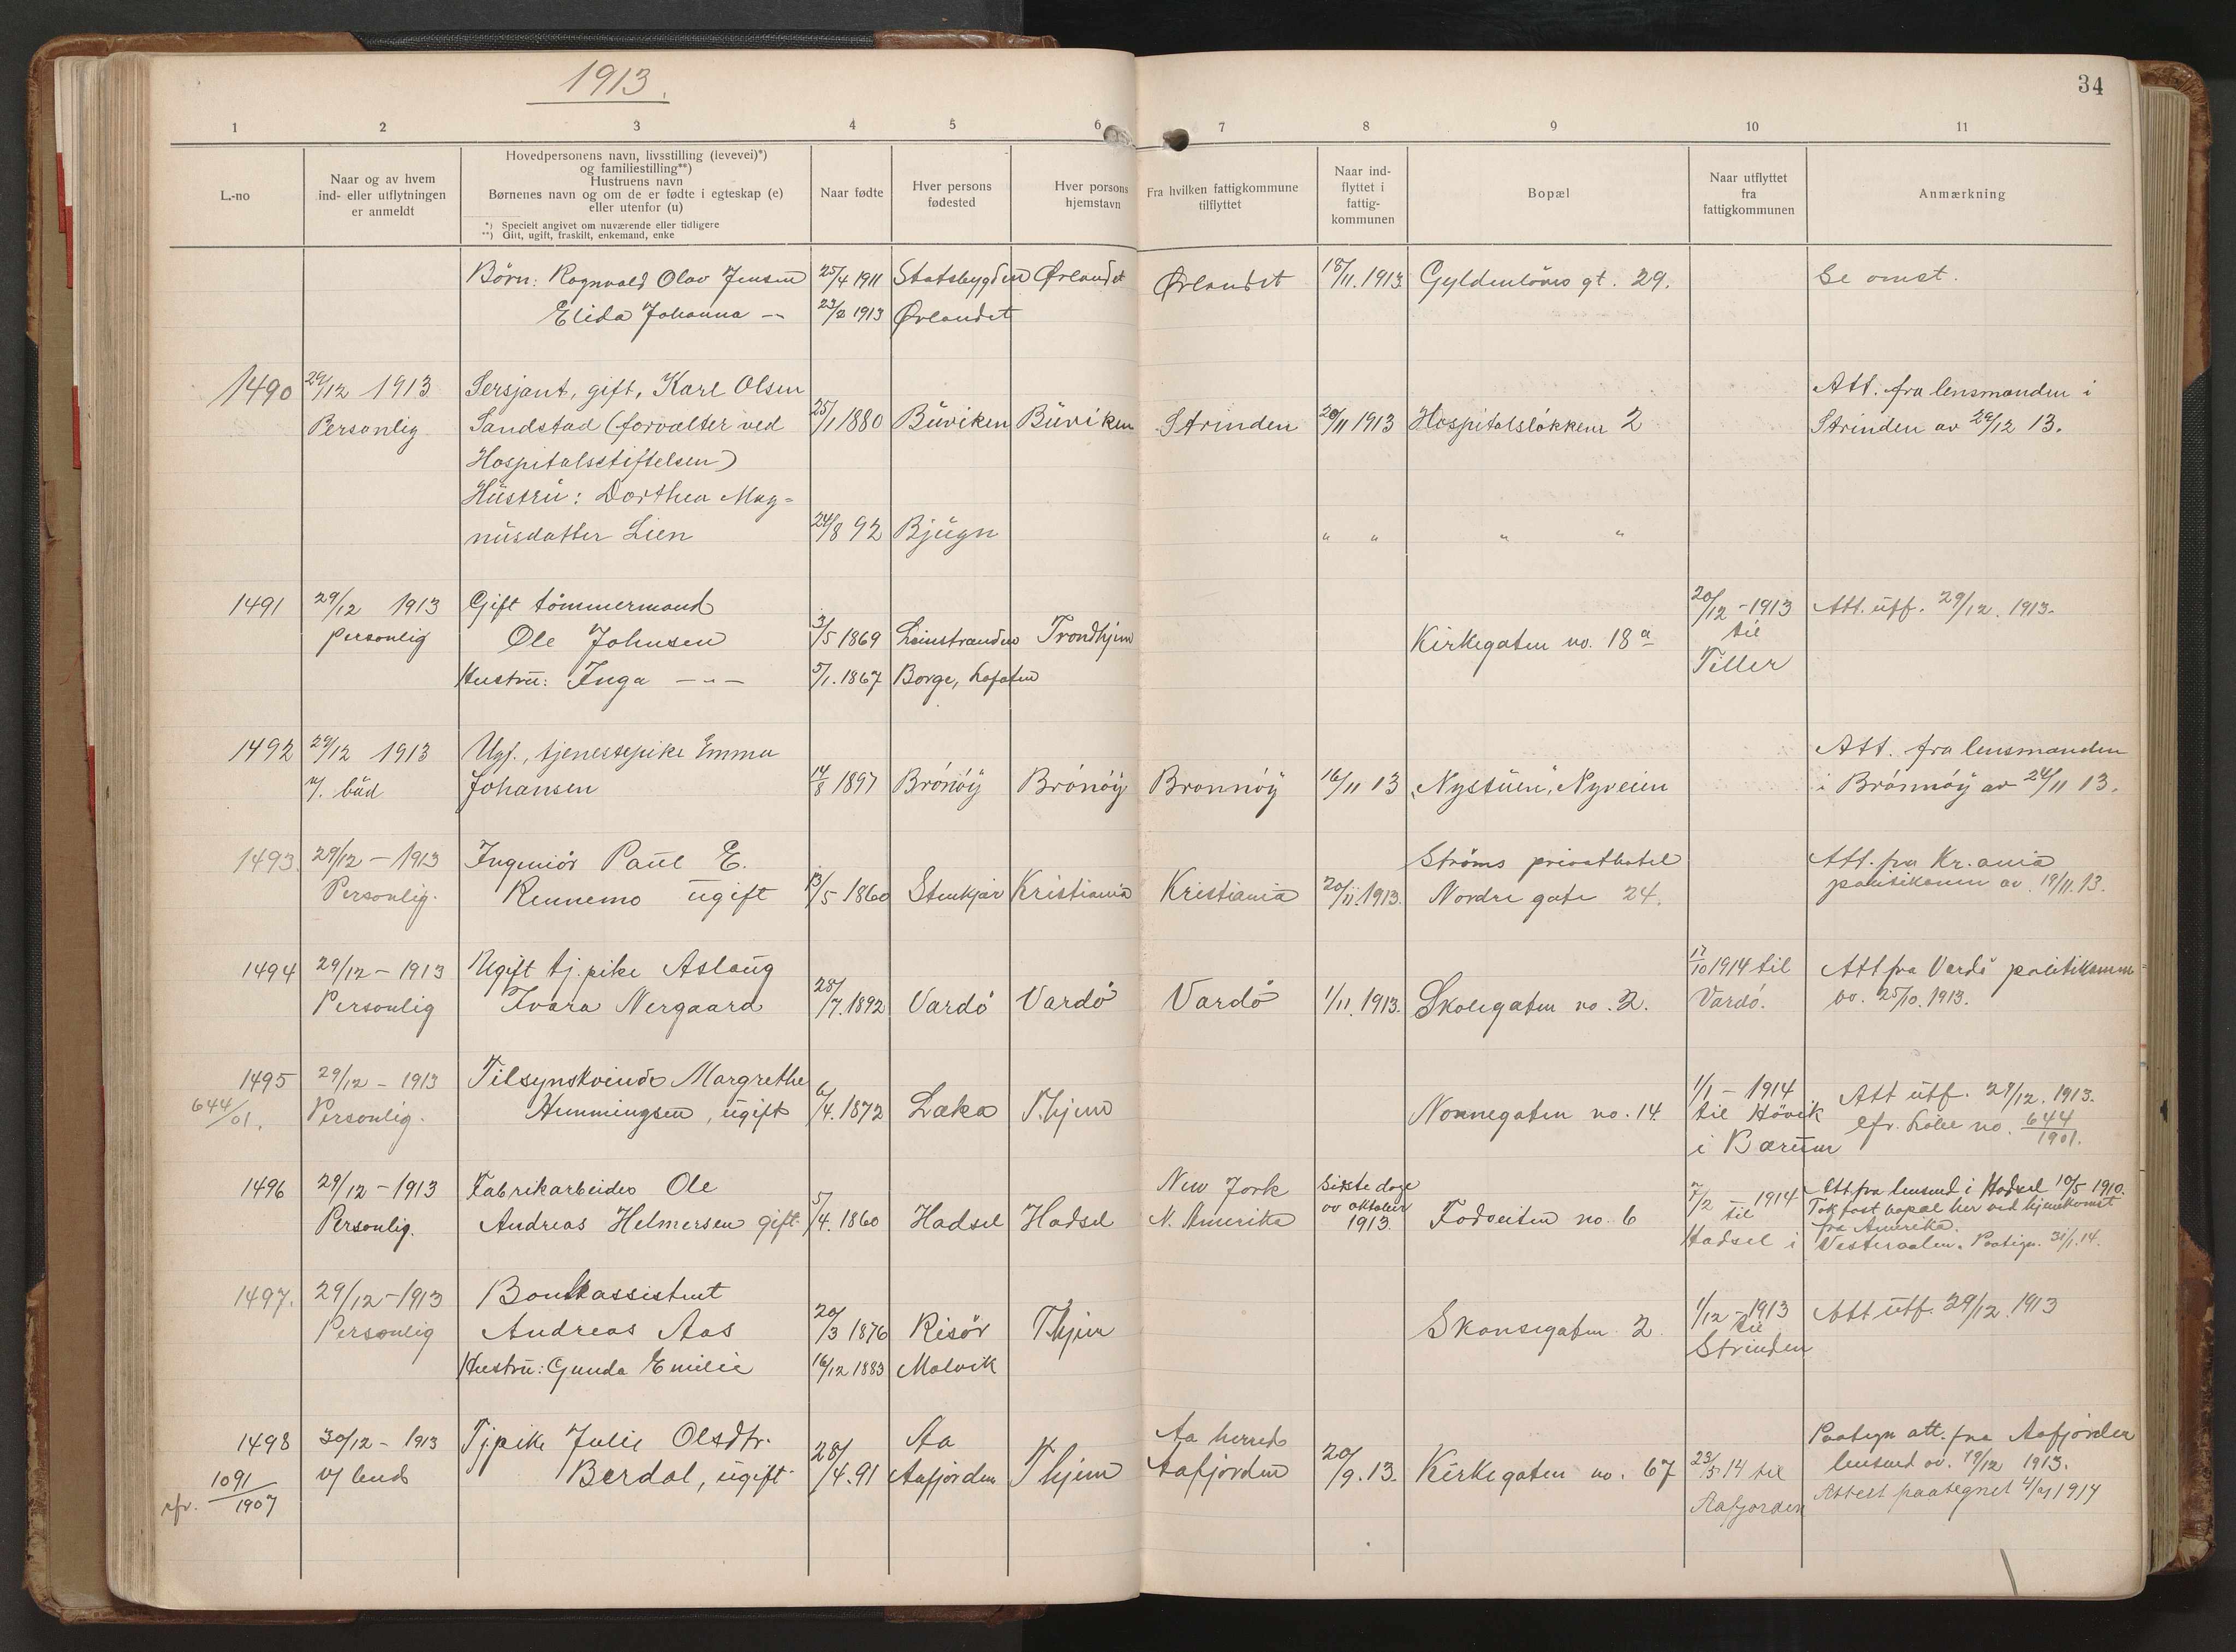 1913.
34
1 2 3 4 5 6 7 8 9 10 11
L.-no
Naar og av hvem
ind- eller utflytningen
er anmeldt
Hovedpersonens navn, livsstilling (levevei)*)
og familiestilling**)
Hustruens navn
Børnenes navn og om de er fødte i egteskap (e)
eller utenfor (u)
*) Specielt angivet om nuværende eller tidligere
**) Gift, ugift, fraskilt, enkemand, enke
Naar fødte
Hver persons
fødested
Hver persons
hjemstavn
Fra hvilken fattigkommune
tilflyttet
Naar ind-
flyttet i
fattig-
kommunen
Bopæl
Naar utflyttet
fra
fattigkommunen
Anmærkning
Børn: Ragnvald Olav Jensen 25/4 1911 Statsbygden Ørlandet Ørlandet 18/11. 1913. Gyldenløves gt. 29. Se omst.
Elida Johanna -"- 23/2 1913 Ørlandet
1490 29/12 1913 Sersjant, gift, Karl Olsen Att. fra lensmanden i
Personlig Sandstad (forvalter ved 25/1 1880 Büviken Büviken Strinden 20/11 1913 Hospitalsløkken 2 Strinden av 29/12 13.
Hospitalsstiftelsen)
Hüstrü: Dorthea Mag=
nüsdatter Lien 24/8 92 Bjügn " " " "
1491 29/12 1913 Gift tömmermand 20/12 - 1913 Att. utf. 29/12. 1913.
personlig Ole Johnsen 3/5 1869 Leinstranden Trondhjem Kirkegaten no. 18a til
Hustrü: Inga -"- 5/1. 1867 Borge, Lofoten Tiller
1492 29/12 1913 Ugf., tjenestepike Emma Att. fra lensmanden
v/. büd Johansen 14/8 1897 Brónóy Brónóy Bronnóy 16/11 13 "Nystüen", Nyveien i Brónnóy av 24/11 13.
1493. 29/12 - 1913 Ingeniör Paül E. Ströms privathotel Att. fra Kr.ania
Personlig. Rennemo ügift 13/5 1860 Stenkjær Kristiania Kristiania 20/11. 1913. Nordre gate 24. politikamm av. 19/11. 13.
1494 29/12 - 1913 Ugift tj.pike Aslaüg 17/10 1914 til Att fra Vardö politikamm=
Personlig Ivara Nergaard 28/7. 1892 Vardö Vardö Vardö 1/11. 1913. Skolegaten no. 2. Vardö. av. 25/10. 1913.
1495 29/12 - 1913 Tilsynskvinde Margrethe 1/1 - 1914 Att ütf. 29/12. 1913.
644/01. Personlig. Hemmingsen, ügift 6/4. 1872 Leka T.hjem Nonnegaten no. 14 til Hövik cfr. Löbe no. 644/1901.
i Bærüm
1496 29/12 - 1913 Fabrikarbeider Ole New York Sidste dage 7/2 - 1914 Att. fra lensmd i Hadsel 10/5 1910.
Personlig. Andreas Helmersen gift 5/4. 1860 Hadsel Hadsel N. Amerika av oktober 1913. Fodveiten no. 6 til Tok fast bopæl her ved hjemkomst
fra Amerika.
Hadsel i Vesteraalen. Paategn. 31/1. 14.
1497. 29/12 - 1913 Bankassistent 1/12 - 1913 Att ütf. 29/12. 1913
Personlig Andreas Aas 20/3 1876 Risör T.hjem Skansegaten 2. til
Hustrü: Gunda Emilie 16/12 1883 Malvik Strinden
1498 30/12 - 1913 Tjpike Julie Olsdtr. Aa Aa herred Paategn att. fra Aafjorden
v/ bud Berdal, ügift 28/4. 91 Aafjorden T.hjem Aafjorden 20/9. 13. Kirkegaten no. 67 23/5 14 til lensmd av. 19/12 1913.
cfr. 1091/1907 Aafjorden Attest paategnet 1914